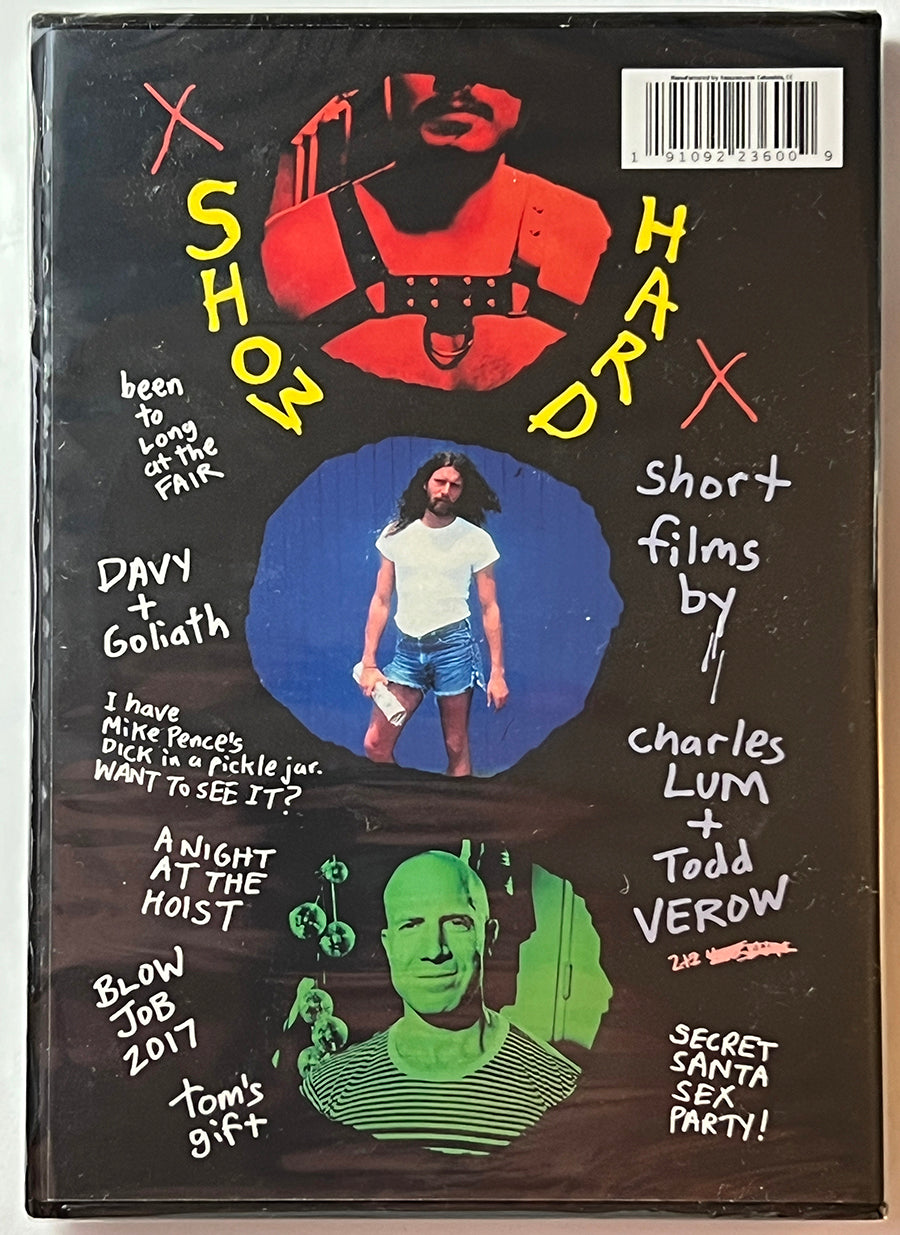 1 91092 23600 9
X
SHOW
HARD
X
been
to
Long
at the
FAIR
short
films
by
DAVY
+
Goliath
I have
Mike Pence's
DICK in a pickle jar.
WANT TO SEE IT?
charles
LUM
+
Todd
VEROW
A NIGHT
AT THE
HOIST
2+2
BLOW
JOB
2017
SECRET
SANTA
SEX
PARTY!
tom's
gift